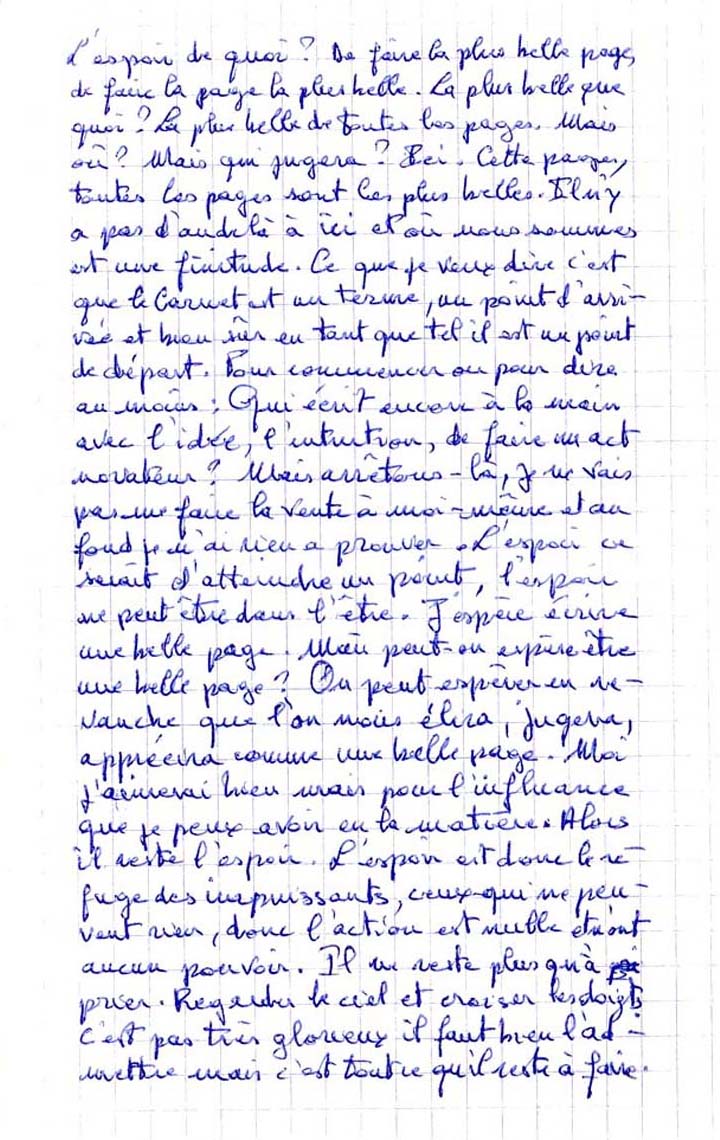 L'espoir de quoi ? De faire la plus belle page,
de faire la page la plus belle. La plus belle que
quoi ? La plus belle de toutes les pages. Mais
où ? Mais qui jugera ? Ici. Cette page,
toutes les pages sont les plus belles. Il n'y
a pas d'audelà à ici et où nous sommes
est une finitude. Ce que je veux dire c'est
que le Carnet est un terme, un point d'arri-
vée et bien sûr en tant que tel il est un point
de départ. Pour commencer ou pour dire
au moins : Qui écrit encore à la main
avec l'idée, l'intuition, de faire un act
novateur ? Mais arrêtons-là, je ne vais
pas me faire la vente à moi-même et au
fond je n'ai rien a prouver. L'espoir ce
serait d'atteindre un point, l'espoir
ne peut être dans l'être. J'espère écrire
une belle page. Mais peut-on espérer être
une belle page ? On peut espérer en re-
vanche que l'on nous élira, jugera,
appréciera comme une belle page. Moi
j'aimerai bien mais pour l'influence
que je peux avoir en la matière. Alors
il reste l'espoir. L'espoir est donc le re-
fuge des impuissants, ceux-qui ne peu-
vent rien, donc l'action est nulle et n'ont
aucun pouvoir. Il ne reste plus qu'à
prier. Regarder le ciel et croiser les doigts
c'est pas très glorieux il faut bien l'ad-
mettre mais c'est tout ce qu'il reste à faire.